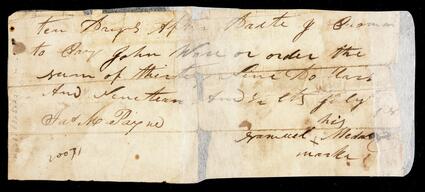 ten Days After Daite I Promis
to Pay John Ware or order the
sum of thirty Nine Dollars
And Nineteen And
Jas M Payne his
Samuel x
marke